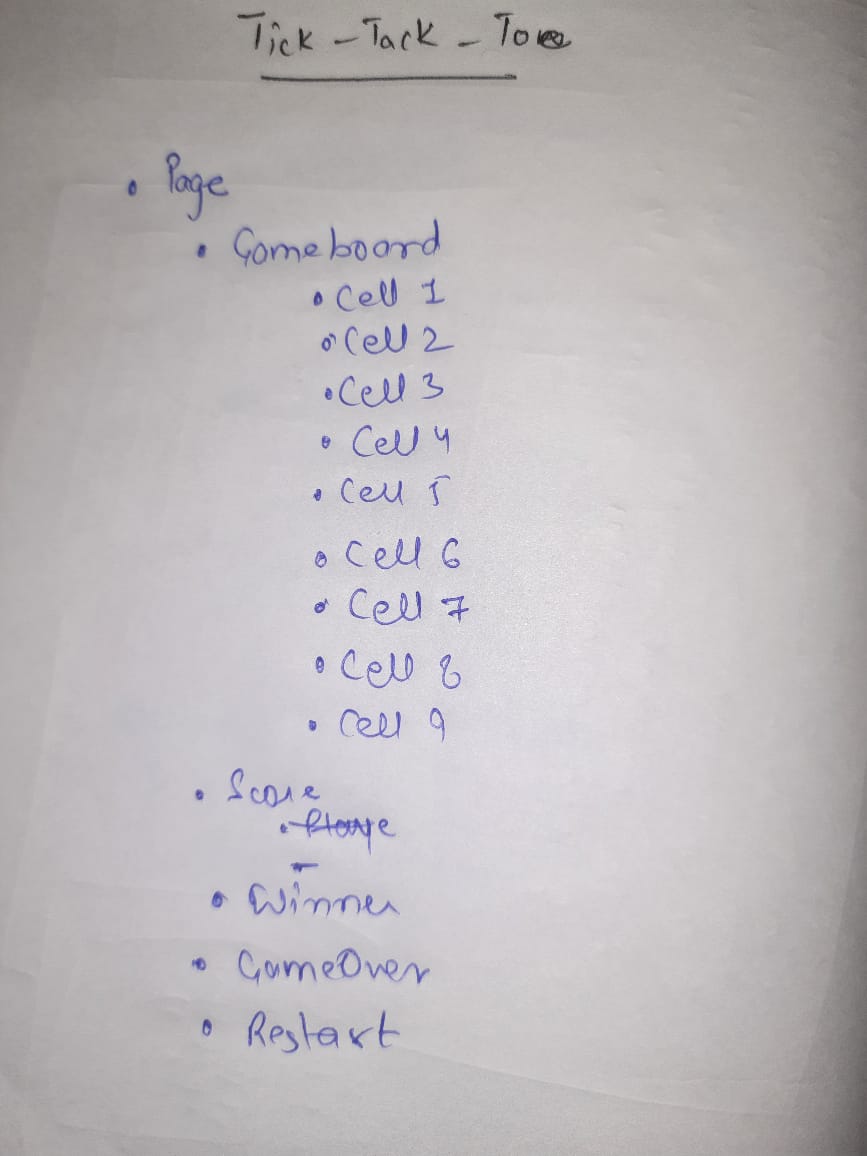 Tick - Tack - Toe
• Page
• Gameboard
• Cell 1
• Cell 2
• Cell 3
• Cell 4
• Cell 5
• Cell 6
• Cell 7
• Cell 8
• Cell 9
• Score
• Winner
• GameOver
• Restart